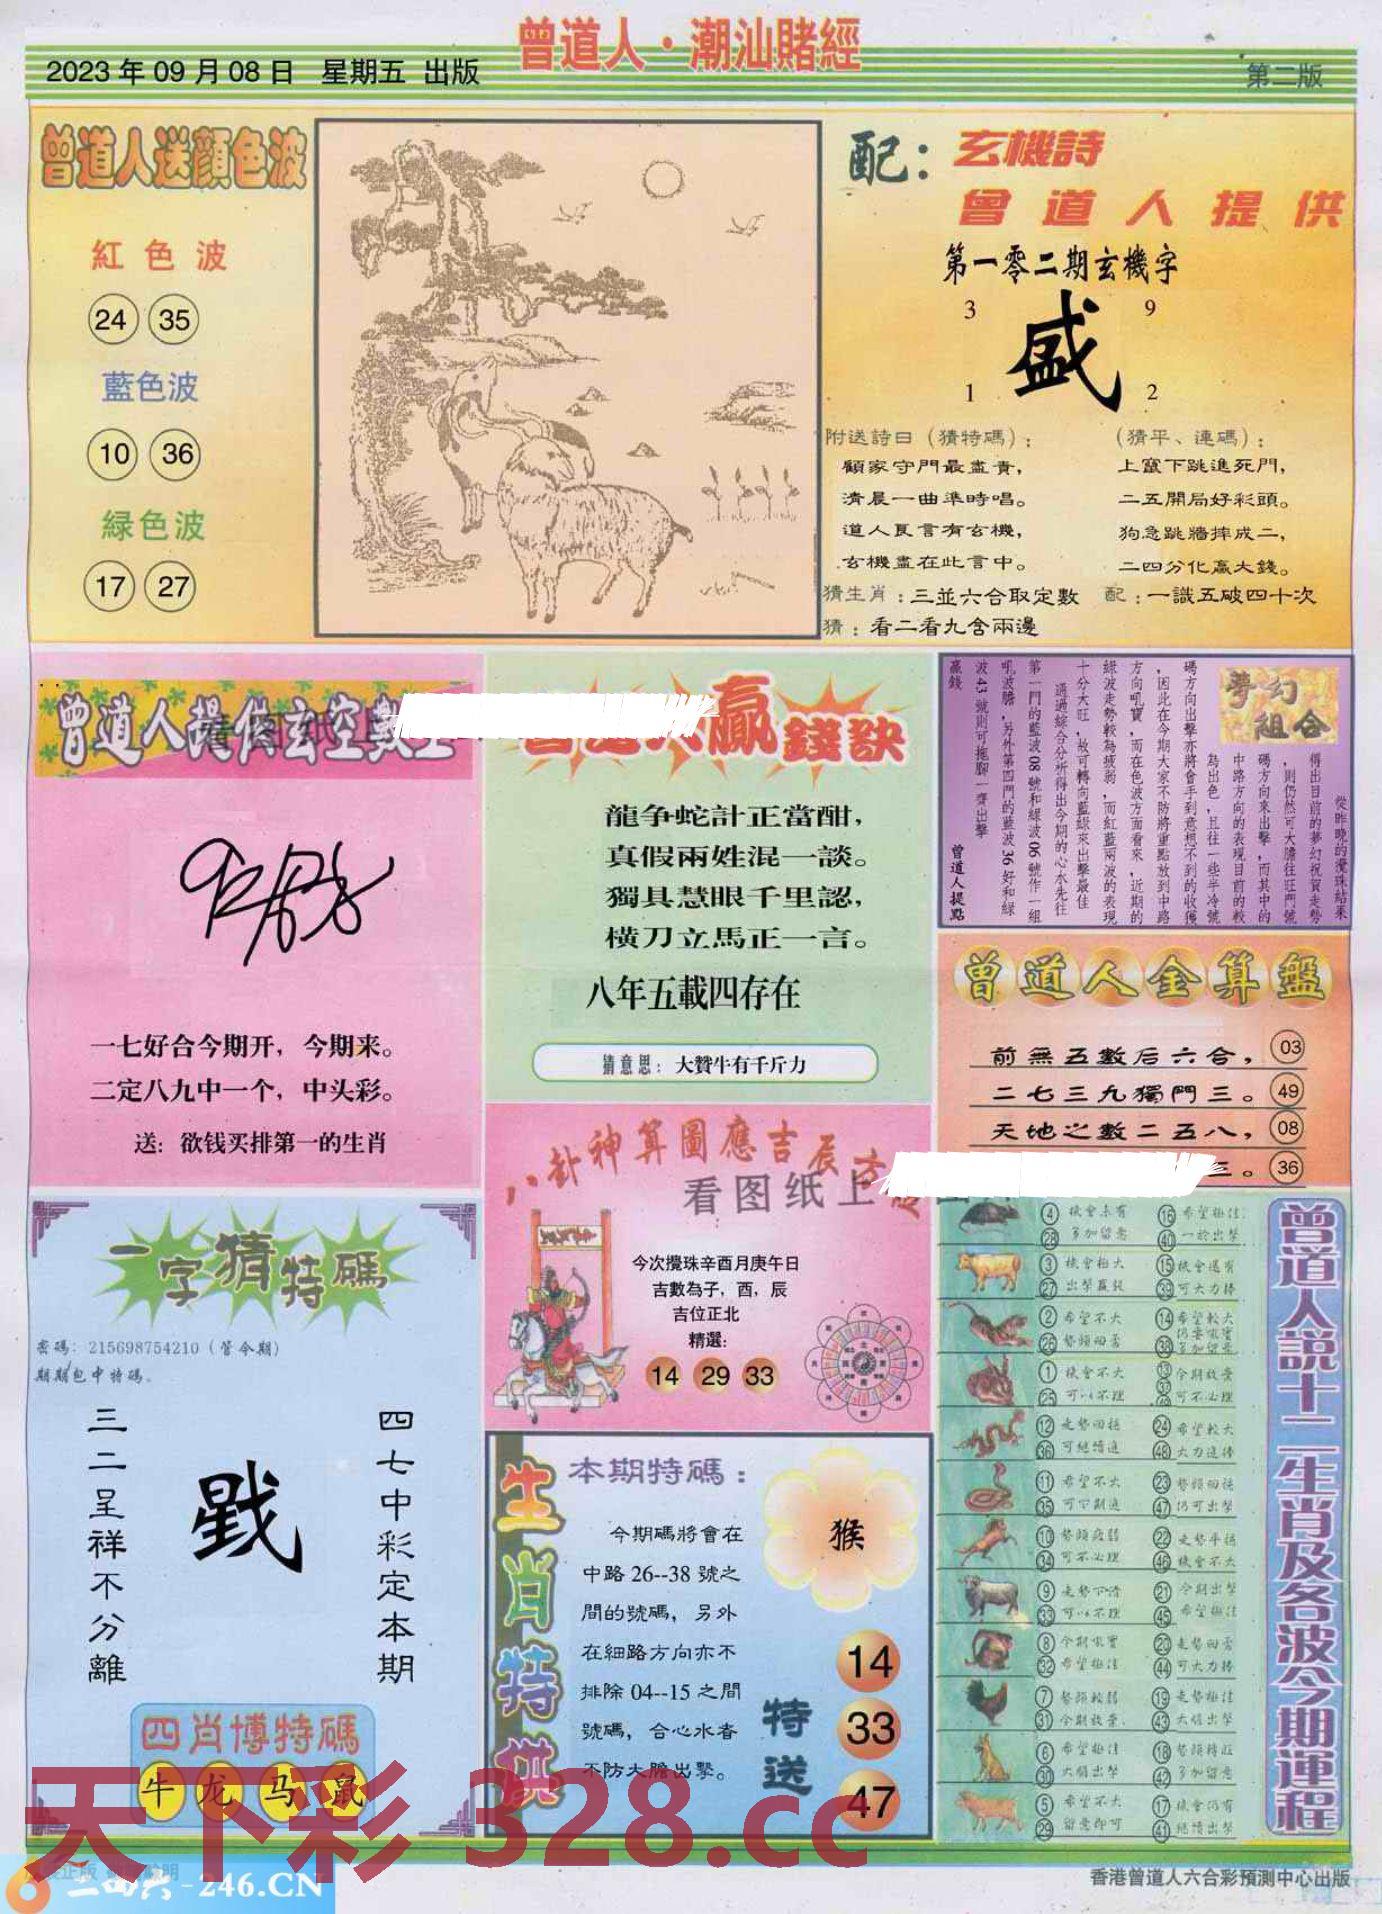 曾道人·潮汕賭經
2023年09月08日 星期五 出版
第二版
曾道人送顏色波
紅色波
24 35
藍色波
10 36
緑色波
17 27
配：玄機詩
曾道人提供
第一零二期玄機字
3 9
盛
1 2
附送詩曰（猜特碼）：
顧家守門最盡責，
清晨一曲準時唱。
道人良言有玄機，
玄機盡在此言中。
猜生肖：三並六合取定數
猜：看二看九含兩邊
（猜平、連碼）：
上竄下跳進死門，
二五開局好彩頭。
狗急跳牆摔成二，
二四分化贏大錢。
配：一識五破四十次
曾道人提供玄空數
一七好合今期开，今期来。
二定八九中一个，中头彩。
送：欲钱买排第一的生肖
贏錢訣
龍争蛇計正當酣，
真假兩姓混一談。
獨具慧眼千里認，
橫刀立馬正一言。
八年五載四存在
猜意思：大贊牛有千斤力
夢幻組合
從昨晚的攪珠結果
得出目前的夢幻祝賀走勢
，則仍然可大膽往旺門號
碼方向來出擊，而其中的
中路方向的表現目前的較
為出色，且往一些半冷號
碼方向出擊亦將會手到意想不到的收獲
，因此在今期大家不防將重點放到中路
方向吼寶，而在色波方面看來，近期的
緑波走勢較為疲弱，而紅藍兩波的表現
十分大旺，故可轉向藍緑來出擊最佳
通過綜合分析得出今期的心水先往
第一門的藍波08號和緑波06號作一組
吼波膽，另外第四門的藍波36好和緑
波43號則可拖腳一齊出擊
贏錢
曾道人提點
曾道人金算盤
前無五數后六合， 03
二七三九獨門三。 49
天地之數二五八， 08
三。 36
八卦神算圖應吉辰方位
看图纸上
今次攪珠辛酉月庚午日
吉數為子，酉，辰
吉位正北
精選：
14 29 33
一字猜特碼
密碼：215698754210（管今期）
期期包中特碼。
四七中彩定本期
戥
三二呈祥不分離
四肖博特碼
牛 龙 马 鼠
生肖特供
本期特碼：
猴
今期碼將會在
中路26--38號之
間的號碼，另外
在細路方向亦不
排除04--15之間
號碼，合心水者
不防大膽出擊。
特送
14
33
47
曾道人説十二生肖及各波今期運程
4 機會未有 16 希望極佳
28 多加留意 40 一於出擊
3 機會極大 15 機會還有
27 出擊贏錢 39 可大力捧
2 希望不大 14 希望較大
26 勢頭回落 38 多加留意
1 機會不大 13 今期放棄
25 可以不理 37 可不必理
12 走勢回穩 24 希望較大
36 可繼續追 48 大力追捧
11 希望不大 23 勢頭回穩
35 可下期追 47 仍可出擊
10 勢頭疲弱 22 走勢平穩
34 可不必理 46 機會不大
9 走勢下滑 21 今期出擊
33 可以不理 45 希望極佳
8 今期吼寶 20 走勢回落
32 希望極佳 44 可大力捧
7 勢頭較弱 19 走勢極佳
31 今期放棄 43 大膽出擊
6 希望極佳 18 勢頭轉旺
30 大膽出擊 42 多加留意
5 希望不大 17 機會仍有
29 留意即可 41 繼續出擊
天下彩 328.cc
二四六-246.CN
香港曾道人六合彩預測中心出版